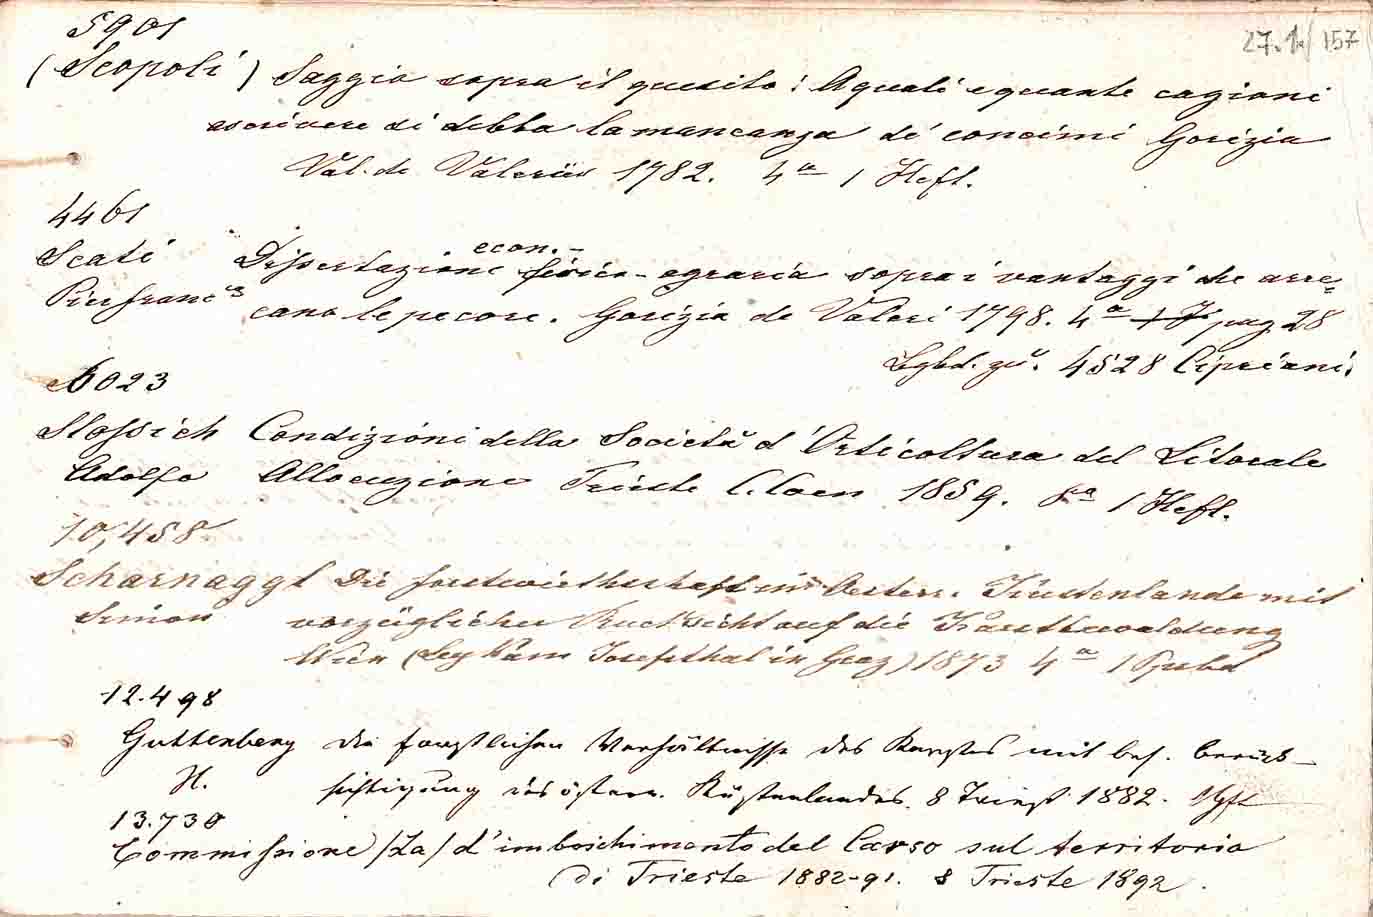 27.1./157
5901
(Scopoli) Saggio sopra il quesito: A quali e quante cagioni
ascrivere di debba la mancanza de' concimi Gorizia
Val. de Valerii 1782. 4° 1 Heft.
4461
Scati Dissertazione econ.-fisico-agraria sopra i vantaggi che arre=
Pierfranc° cano le pecore. Gorizia de Valeri 1798. 4° pag 28
4528 Cipriani.
6023
Stossich Condizioni della Società d'Orticoltura del Litorale
Adolfo Allocuzione Trieste C. Coen 1859. 8° 1 Heft.
10,458
Scharnaggl Die Forstwirthschaft im Oesterr. Küstenlande mit
Simon vorzüglicher Rücksicht auf die Karstbewaldung
Wien (Leykam Josefsthal in Graz) 1873 4°
12.498
Guttenberg Die forstlichen Verhältnisse des Karstes mit bes. Berück-
H. sichtigung des österr. Küstenlandes. 8 Triest 1882. 1 Hft
13.730
Commissione /La/ d'imboschimento del Carso sul territorio
di Trieste 1882-91. 8 Trieste 1892.